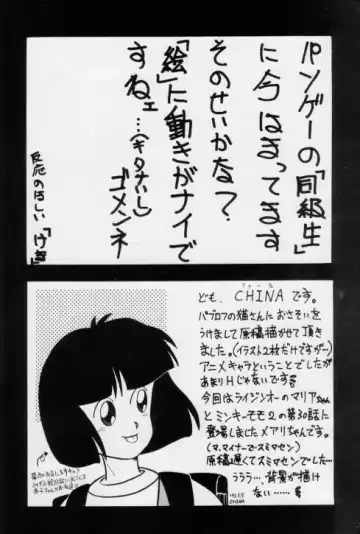 パソゲーの「同級生」
に今はまってます
そのせいかな？
「絵」に動きがナイで
すねェ…(キタナいし)
ゴメンネ
反応のほしい「けき」
ども、CHINAです。
パブロフの猫さんにおさそいを
うけまして原稿描かせて頂き
ました。(イラスト2枚だけですが…)
アニメキャラということでしたが
あまりHじゃないです
今回はライジンオーのマリアちゃん
とミンキーモモ2の第30話に
登場しましたメアリちゃんです。
(マ、マイナーでスミマセン)
原稿遅くてスミマセンでした…
ううう…、背景が描け
ない……
CHINA